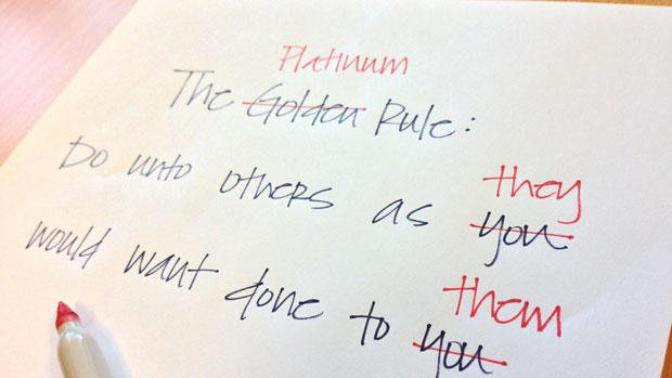 Platinum
The Golden Rule:
they
Do unto others as you
them
would want done to you